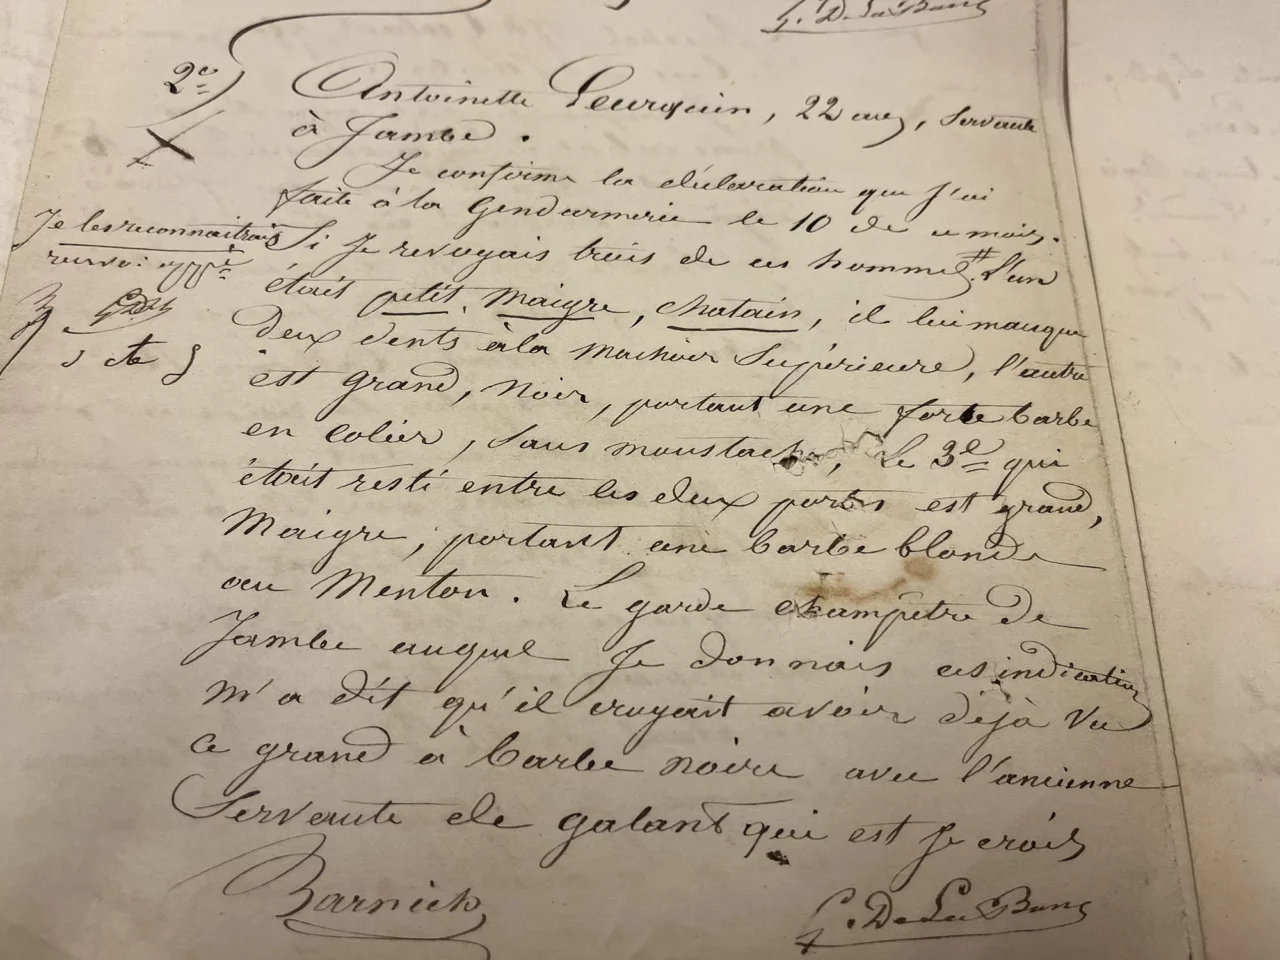 G. De Le Bong
2e Antoinette Leurquin, 22 ans, servante
à Jambe.
Je confirme la déclaration que j'ai
faite à la Gendarmerie le 10 de ce mois.
Je les reconnaitrais
Si je revoyais trois de ces hommes # L'un
renvoi appé
était petit, maigre, chatain, il lui manque
deux dents à la machoir supérieure, l'autre
est grand, noir, portant une forte barbe
en colier, sans moustache, Le 3e qui
était resté entre les deux portes est grand,
Maigre, portant une barbe blonde
au Menton. Le garde champêtre de
Jambe auquel je donnais ces indications
m'a dit qu'il croyait avoir déjà vu
ce grand à barbe noire avec l'ancienne
Servante de galant qui est je crois
Barnich